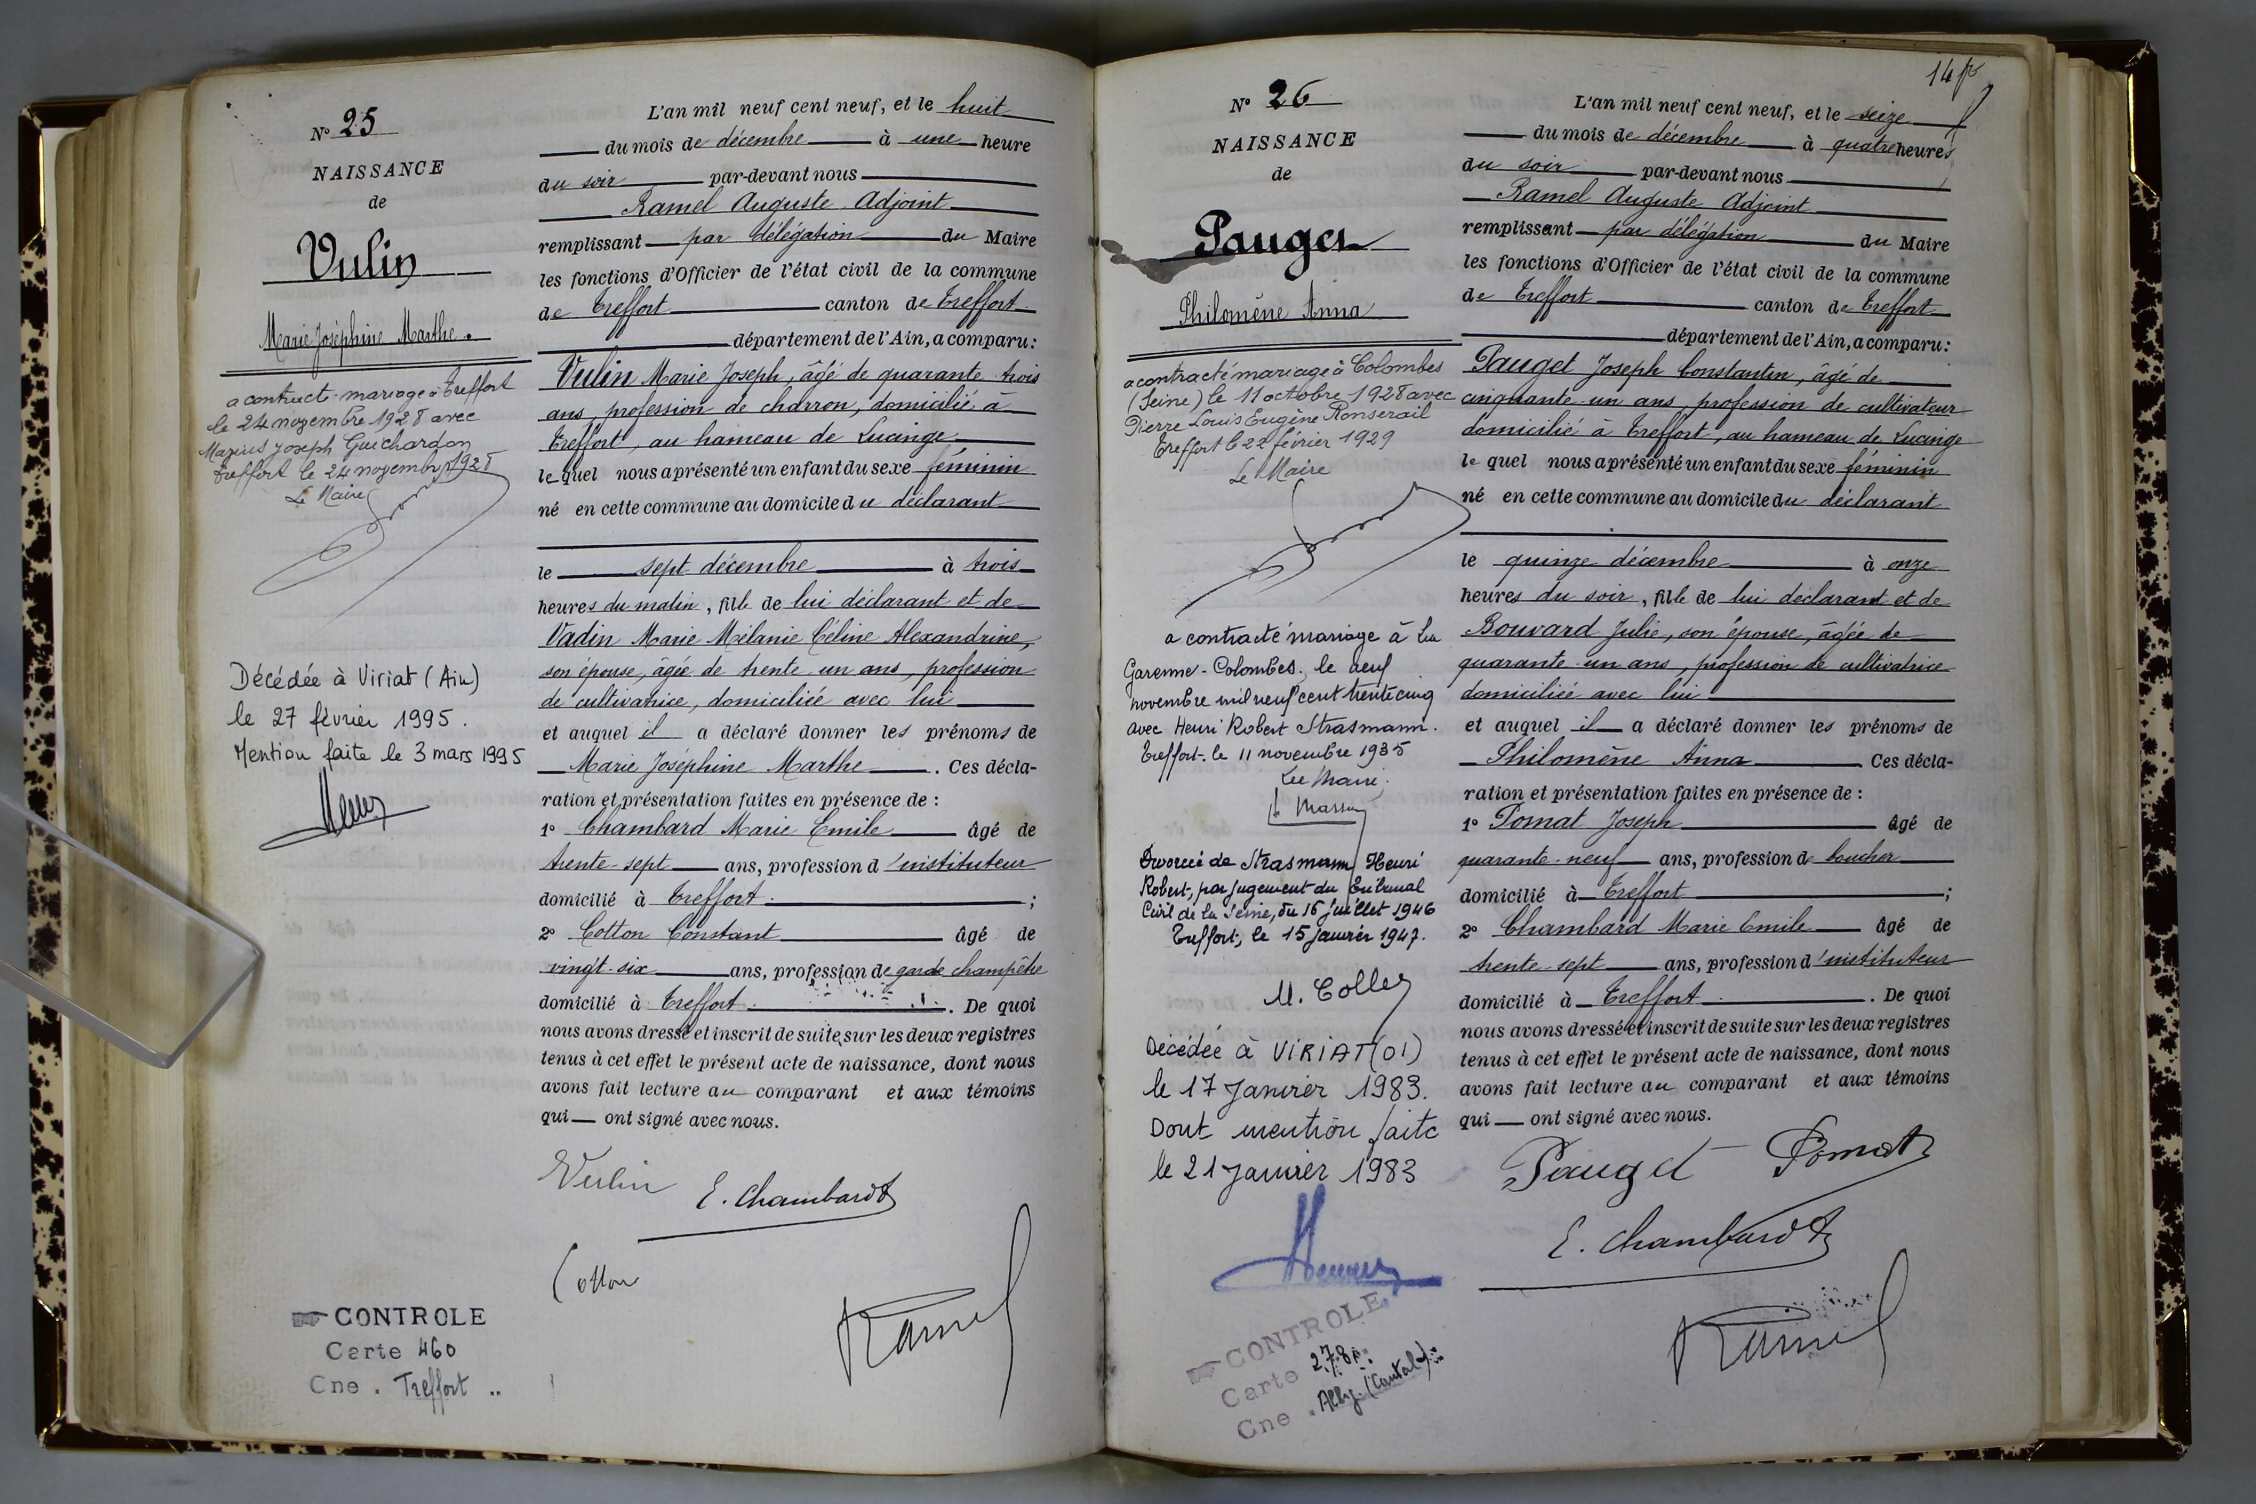 N° 25
NAISSANCE
de
Vulin
Marie Joséphine Marthe.
a contracté mariage à Treffort
le 24 novembre 1928 avec
Marius Joseph Guichardon
Treffort le 24 novembre 1928
Le Maire
Décédée à Viriat (Ain)
le 27 février 1995.
Mention faite le 3 mars 1995
CONTROLE
Carte 460
Cne . Treffort ..
L'an mil neuf cent neuf, et le huit
du mois de décembre à une heure
du soir par-devant nous
Ramel Auguste Adjoint
remplissant par délégation du Maire
les fonctions d'Officier de l'état civil de la commune
de Treffort canton de Treffort
département de l'Ain, a comparu:
Vulin Marie Joseph, âgé de quarante trois
ans, profession de charron, domicilié à
Treffort, au hameau de Lucinge
lequel nous a présenté un enfant du sexe féminin
né en cette commune au domicile du déclarant
le sept décembre à trois
heures du matin, fille de lui déclarant et de
Vadin Marie Mélanie Céline Alexandrine,
son épouse, âgée de trente un ans, profession
de cultivatrice, domiciliée avec lui
et auquel il a déclaré donner les prénoms de
Marie Joséphine Marthe. Ces décla-
ration et présentation faites en présence de :
1° Chambard Marie Emile âgé de
trente-sept ans, profession d'instituteur
domicilié à Treffort ;
2° Cotton Constant âgé de
vingt-six ans, profession de garde champêtre
domicilié à Treffort. De quoi
nous avons dressé et inscrit de suite sur les deux registres
tenus à cet effet le présent acte de naissance, dont nous
avons fait lecture au comparant et aux témoins
qui ont signé avec nous.
Vulin E. Chambard
Cotton
Ramel
14
N° 26
NAISSANCE
de
Pauget
Philomène Anna
a contracté mariage à Colombes
(Seine) le 11 octobre 1928 avec
Pierre Louis Eugène Ronserail
Treffort le 22 février 1929
Le Maire
a contracté mariage à La
Garenne-Colombes, le neuf
novembre mil neuf cent trente cinq
avec Henri Robert Strasmann.
Treffort, le 11 novembre 1935
Le Maire,
Divorcée de Strasmann Henri
Robert, par jugement du Tribunal
Civil de la Seine, du 16 juillet 1946
Treffort, le 15 janvier 1947.
Décédée à VIRIAT (01)
le 17 Janvier 1983.
Dont mention faite
le 21 Janvier 1983
CONTROLE
Carte 278
Cne . Ally (Cantal)
L'an mil neuf cent neuf, et le seize
du mois de décembre à quatre heures
du soir par-devant nous
Ramel Auguste Adjoint
remplissant par délégation du Maire
les fonctions d'Officier de l'état civil de la commune
de Treffort canton de Treffort
département de l'Ain, a comparu:
Pauget Joseph Constantin, âgé de
cinquante un ans, profession de cultivateur
domicilié à Treffort, au hameau de Lucinge
lequel nous a présenté un enfant du sexe féminin
né en cette commune au domicile du déclarant
le quinze décembre à onze
heures du soir, fille de lui déclarant et de
Bouvard Julie, son épouse, âgée de
quarante-un ans, profession de cultivatrice
domiciliée avec lui
et auquel il a déclaré donner les prénoms de
Philomène Anna Ces décla-
ration et présentation faites en présence de :
1° Pomat Joseph âgé de
quarante-neuf ans, profession de boucher
domicilié à Treffort ;
2° Chambard Marie Emile âgé de
trente-sept ans, profession d'instituteur
domicilié à Treffort. De quoi
nous avons dressé et inscrit de suite sur les deux registres
tenus à cet effet le présent acte de naissance, dont nous
avons fait lecture au comparant et aux témoins
qui ont signé avec nous.
Pauget Pomat
E. Chambard
Ramel